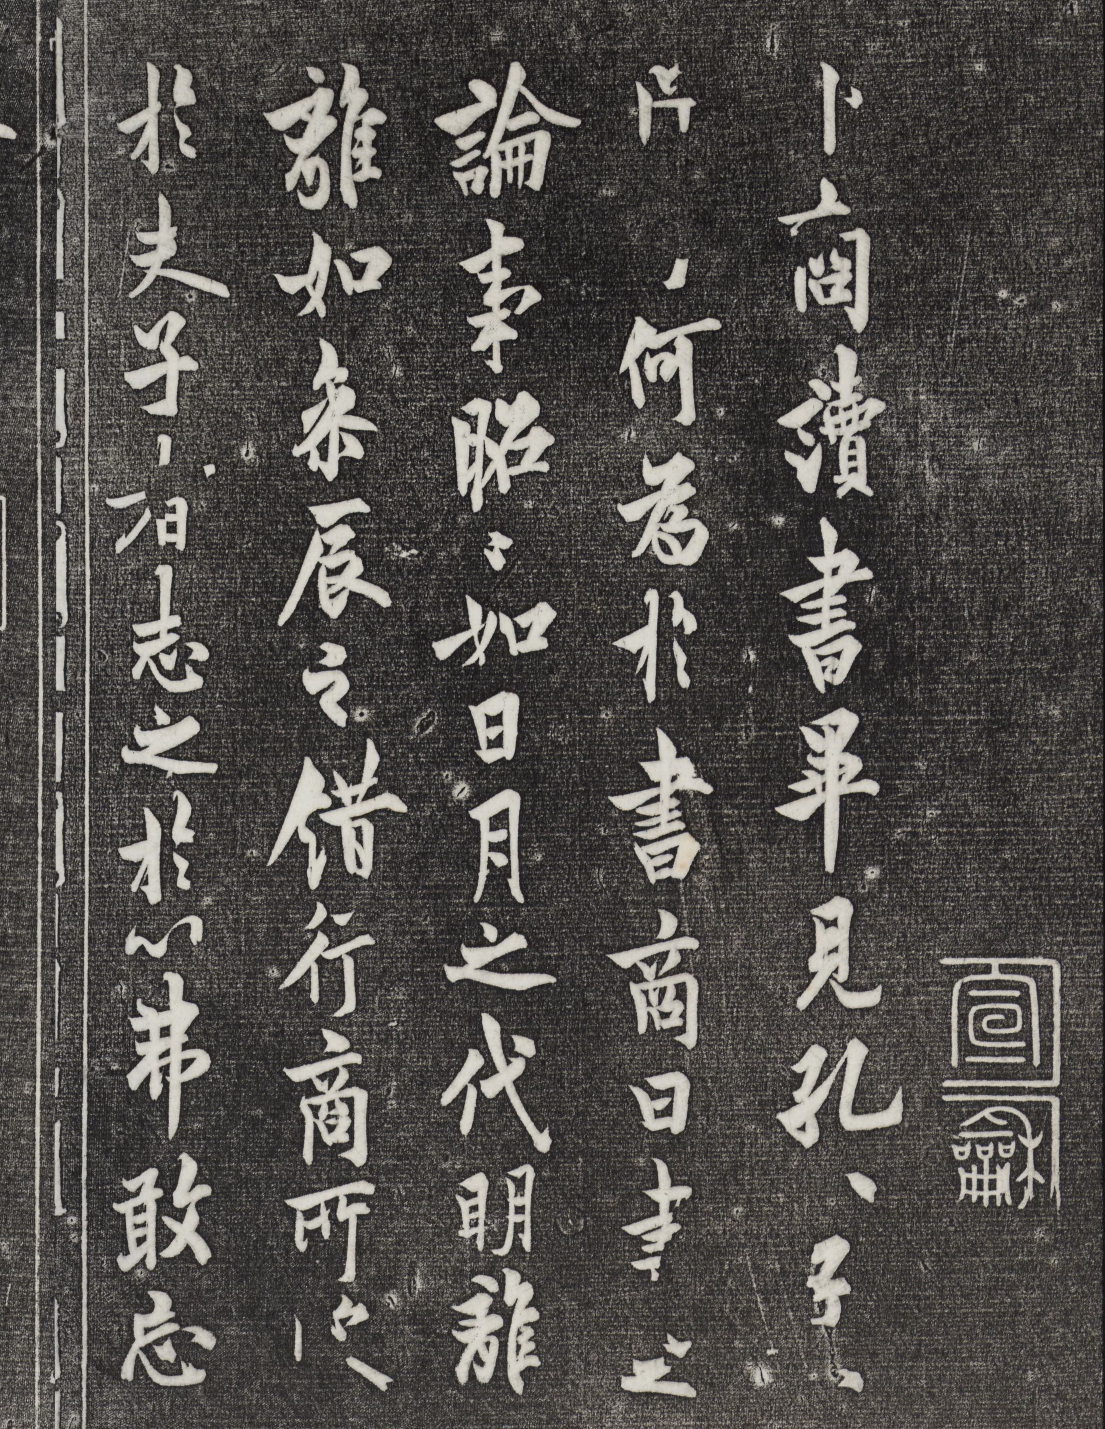 宣龢
卜商讀書畢見孔、子、
何為於書商曰書之
論事昭〻如日月之代明離
離如參辰之錯行商所
於夫子志之於心弗敢忘